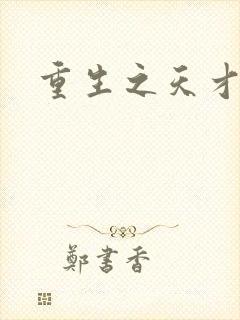 重生之天才
鄭書香